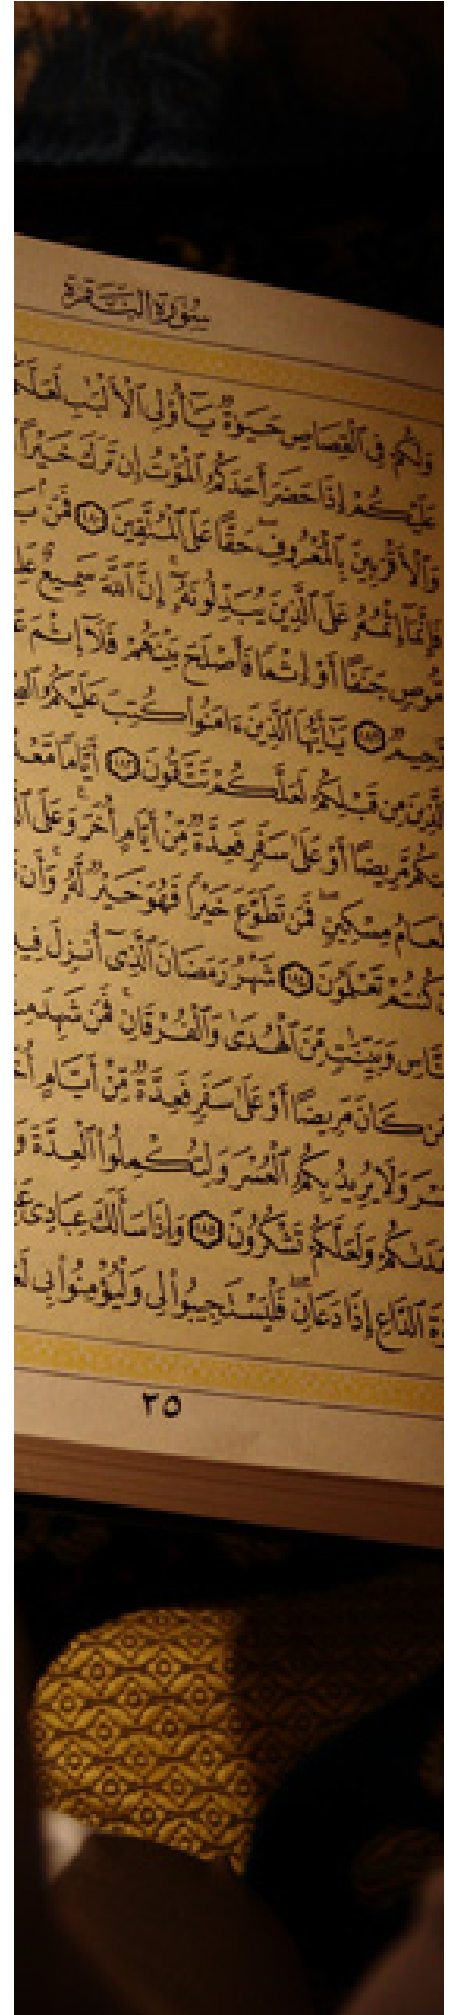 سُورَةُ البَقَرَةِ
وَلَكُمْ فِي ٱلْقِصَاصِ حَيَوٰةٌ يَٰٓأُو۟لِي ٱلْأَلْبَٰبِ
عَلَيْكُمْ إِذَا حَضَرَ أَحَدَكُمُ ٱلْمَوْتُ إِن تَرَكَ خَيْرًا
وَٱلْأَقْرَبِينَ بِٱلْمَعْرُوفِ حَقًّا عَلَى ٱلْمُتَّقِينَ ١٨٠ فَمَنۢ
فَإِنَّمَآ إِثْمُهُۥ عَلَى ٱلَّذِينَ يُبَدِّلُونَهُۥٓ إِنَّ ٱللَّهَ سَمِيعٌ
مُّوصٍ جَنَفًا أَوْ إِثْمًا فَأَصْلَحَ بَيْنَهُمْ فَلَآ إِثْمَ
رَّحِيمٌ ١٨٢ يَٰٓأَيُّهَا ٱلَّذِينَ ءَامَنُوا۟ كُتِبَ عَلَيْكُمُ
ٱلَّذِينَ مِن قَبْلِكُمْ لَعَلَّكُمْ تَتَّقُونَ ١٨٣ أَيَّامًا
مَّرِيضًا أَوْ عَلَىٰ سَفَرٍ فَعِدَّةٌ مِّنْ أَيَّامٍ أُخَرَ وَعَلَى
طَعَامُ مِسْكِينٍ فَمَن تَطَوَّعَ خَيْرًا فَهُوَ خَيْرٌ لَّهُۥ وَأَن
كُنتُمْ تَعْلَمُونَ ١٨٤ شَهْرُ رَمَضَانَ ٱلَّذِىٓ أُنزِلَ فِيهِ
وَبَيِّنَٰتٍ مِّنَ ٱلْهُدَىٰ وَٱلْفُرْقَانِ فَمَن شَهِدَ
كَانَ مَرِيضًا أَوْ عَلَىٰ سَفَرٍ فَعِدَّةٌ مِّنْ أَيَّامٍ
وَلَا يُرِيدُ بِكُمُ ٱلْعُسْرَ وَلِتُكْمِلُوا۟ ٱلْعِدَّةَ
هَدَىٰكُمْ وَلَعَلَّكُمْ تَشْكُرُونَ ١٨٥ وَإِذَا سَأَلَكَ عِبَادِى
ٱلدَّاعِ إِذَا دَعَانِ فَلْيَسْتَجِيبُوا۟ لِى وَلْيُؤْمِنُوا۟ بِى
٢٥